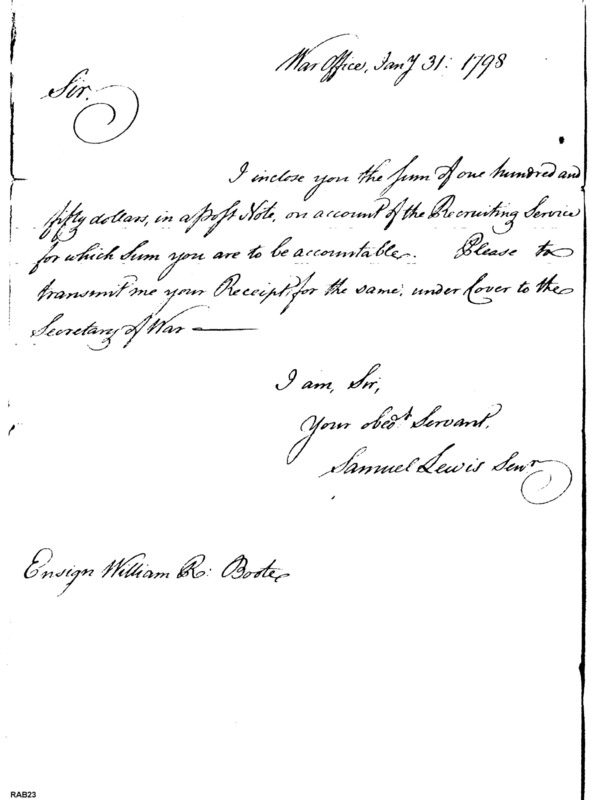 War Office, Jany 31: 1798
Sir.
I inclose you the sum of one hundred and
fifty dollars, in a post Note, on account of the Recruiting Service
for which Sum you are to be accountable. Please to
transmit me your Receipt, for the same, under Cover to the
Secretary of War —
I am, Sir,
Your obedt Servant,
Samuel Lewis Senr
Ensign William R: Boote
RAB23